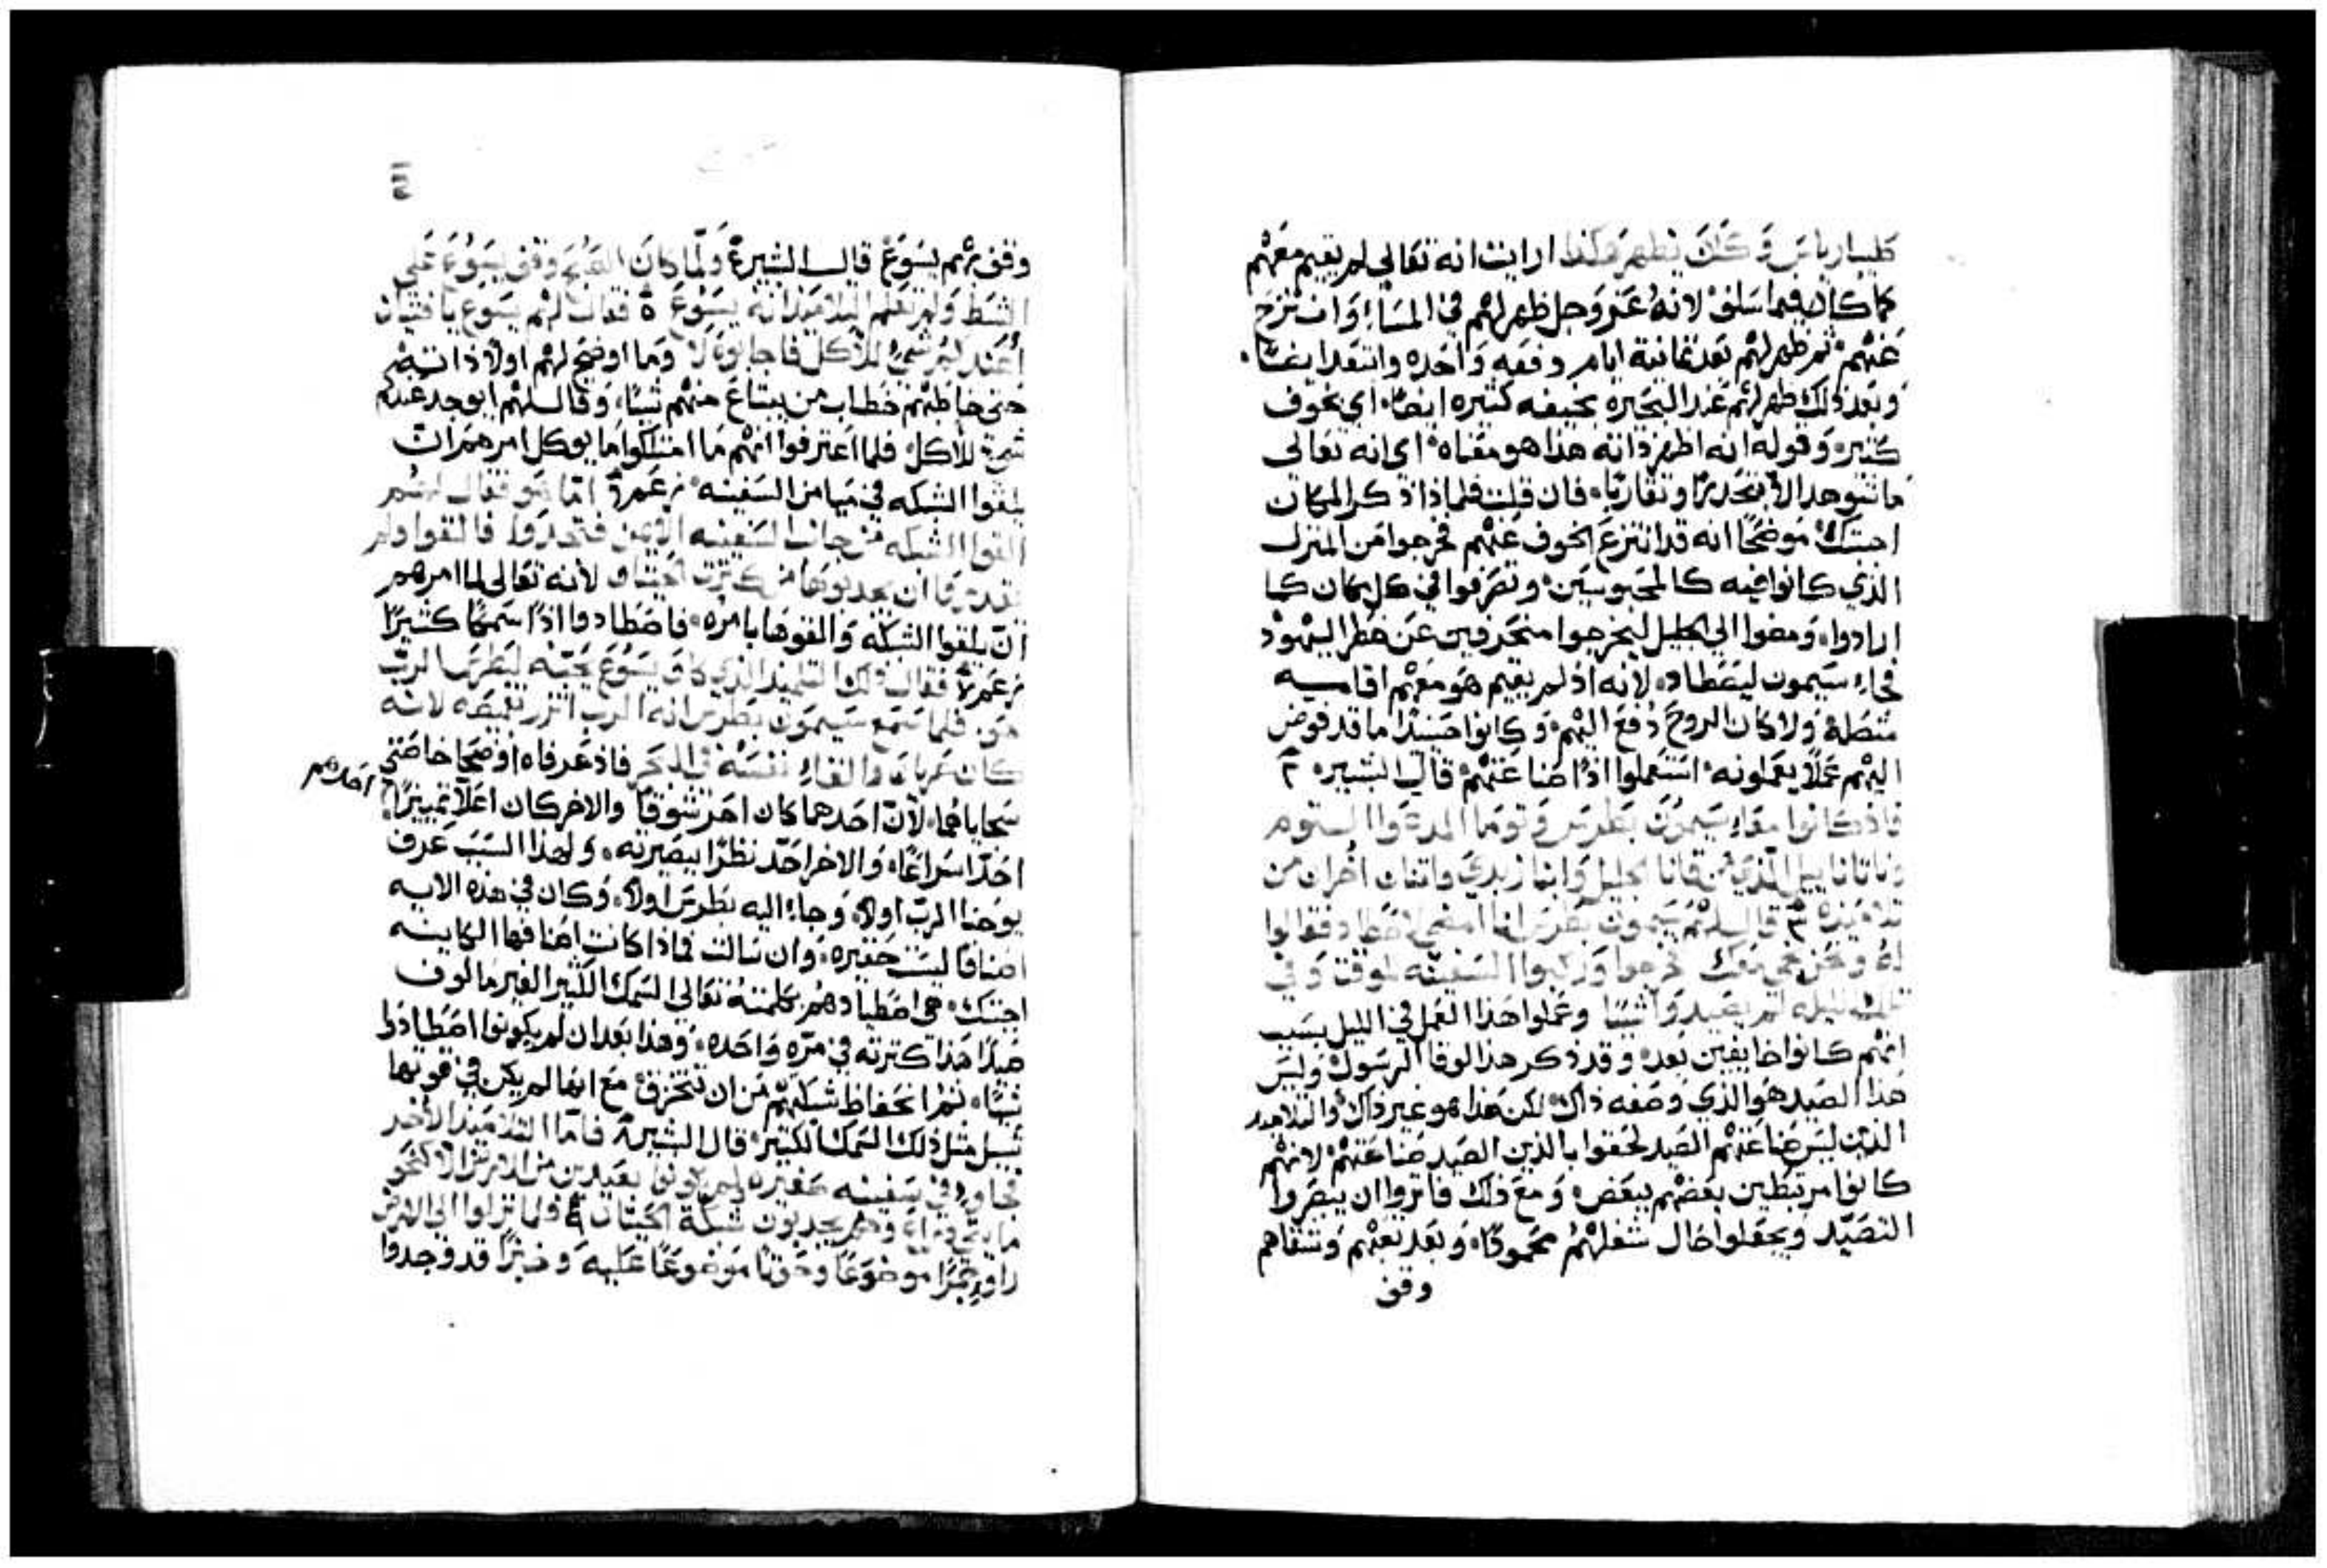 طيبارياس وكان تطهره هكذا ارايت انه تعالى لم يقيم معهم
كما كان فيما سلف لانه عز وجل ظهر لهم في المساء وانتزح
عنهم ثم ظهر لهم بعد ثمانية ايام وقفه واحده وابتعد ايضًا
وبعد ذلك ظهر لهم عند البحيره بخيفه كثيره ايضًا اي بخوف
كثير وقوله انه اظهر ذاته هذا هو معناه اي انه تعالى
فان قلت فلماذا ذكر المكان
اجبتك موضحًا انه قد انتزع الخوف عنهم فخرجوا من المنزل
الذي كانوا فيه كالمحبوسين وتصرفوا في كل مكان كما
ارادوا ومضوا الي الجليل ليخرجوا منحرفين عن خطر اليهود
فجاء سيمون ليصطاد لانه اذ لم يقيم هو معهم اقامه
متصلة ولا كان الروح دفع اليهم وكانوا حينئذ ما قد فوض
اليهم عملاً يعملونه استعملوا اذًا صناعتهم قال البشير
فاذ كانوا معًا سيمون بطرس وتوما المدعوا التوم
وناتاناييل الذي من قانا الجليل وابنا زبدي واثنان اخران من
تلاميذه قال لهم سيمون بطرس انا امضي لاصطاد فقالوا
له ونحن نجي معك فخرجوا وركبوا السفينه للوقت وفي
تلك الليله لم يصيدوا شيًا وعملوا هذا العمل في الليل بسبب
انهم كانوا خايفين بعد وقد ذكر هذا لوقا الرسول وليس
هذا الصيد هو الذي وصفه ذاك لكن هذا هو غير ذاك والتلاميد
الذين ليس صناعتهم الصيد لحقوا بالذين الصيد صناعتهم لانهم
كانوا مرتبطين بعضهم ببعض ومع ذلك فاثروا ان يبصروا
التصيد ويجعلوا حال شغلهم محمودًا وبعد تعبهم وشقاهم
وقف
وقف بهم يسوع قال البشير ولما كان الصبح وقف يسوع على
الشط ولم يعلم التلاميذ انه يسوع فقال لهم يسوع يا فتيان
اعندكم شي للأكل فاجابوه لا وما اوضح لهم اولاً ذاته
حتى خاطبهم خطاب من يبتاع منهم شيًا وقال لهم ايوجد عندكم
شي للأكل فلما اعترفوا انهم ما امتلكوا ما يوكل امرهم ان
يلقوا الشبكه في ميامن السفينه اما هو فقال لهم
القوا الشبكه من جانب السفينه الايمن فتجدوا فالقوا ولم
يقدروا ان يجدبوها من كثرت الحيتان لأنه تعالى لما امرهم
ان يلقوا الشبكه والقوها بامره فاصطادوا اذًا سمكًا كثيرًا
فقال ذلك التلميذ الذي كان يسوع يحبه لبطرس الرب
هو فلما سمع سيمون بطرس انه الرب اتزر بقميصه لانه
كان عريان والقاء نفسه في البحر فاذ عرفاه اوضحا خاصتي
سجاياهما لأن احدهما كان احر شوقًا والاخر كان اعلا تمييزًا
احدهم
احدّ اسراعًا والاخر احدّ نظرًا ببصيرته ولهذا السبب عرف
يوحنا الرب اولاً وجاء اليه بطرس اولاً وكان في هذه الايه
اصنافًا ليست حقيره وان سالت فماذا كانت اصنافها الكاينه
اجبتك هي اصطيادهم بكلمته تعالى السمك الكثير الغير مالوف
كثرته في مرّه واحده وهذا بعد ان لم يكونوا اصطادوا
شيًا ثم انحفاظ شبكتهم من ان تتخزق مع انها لم يكن في قوتها
مثل ذلك السمك الكثير قال البشير فاما التلاميذ الأخر
فجاوا في سفينه صغيره ولم يكونوا بعيدين من الارض الا كنحو
مايتي ذراع وهم يجدبون شبكة الحيتان فلما نزلوا الي الارض
راوا جمرًا موضوعًا وحوتًا موضوعًا عليه وخبزًا قد وجدوا